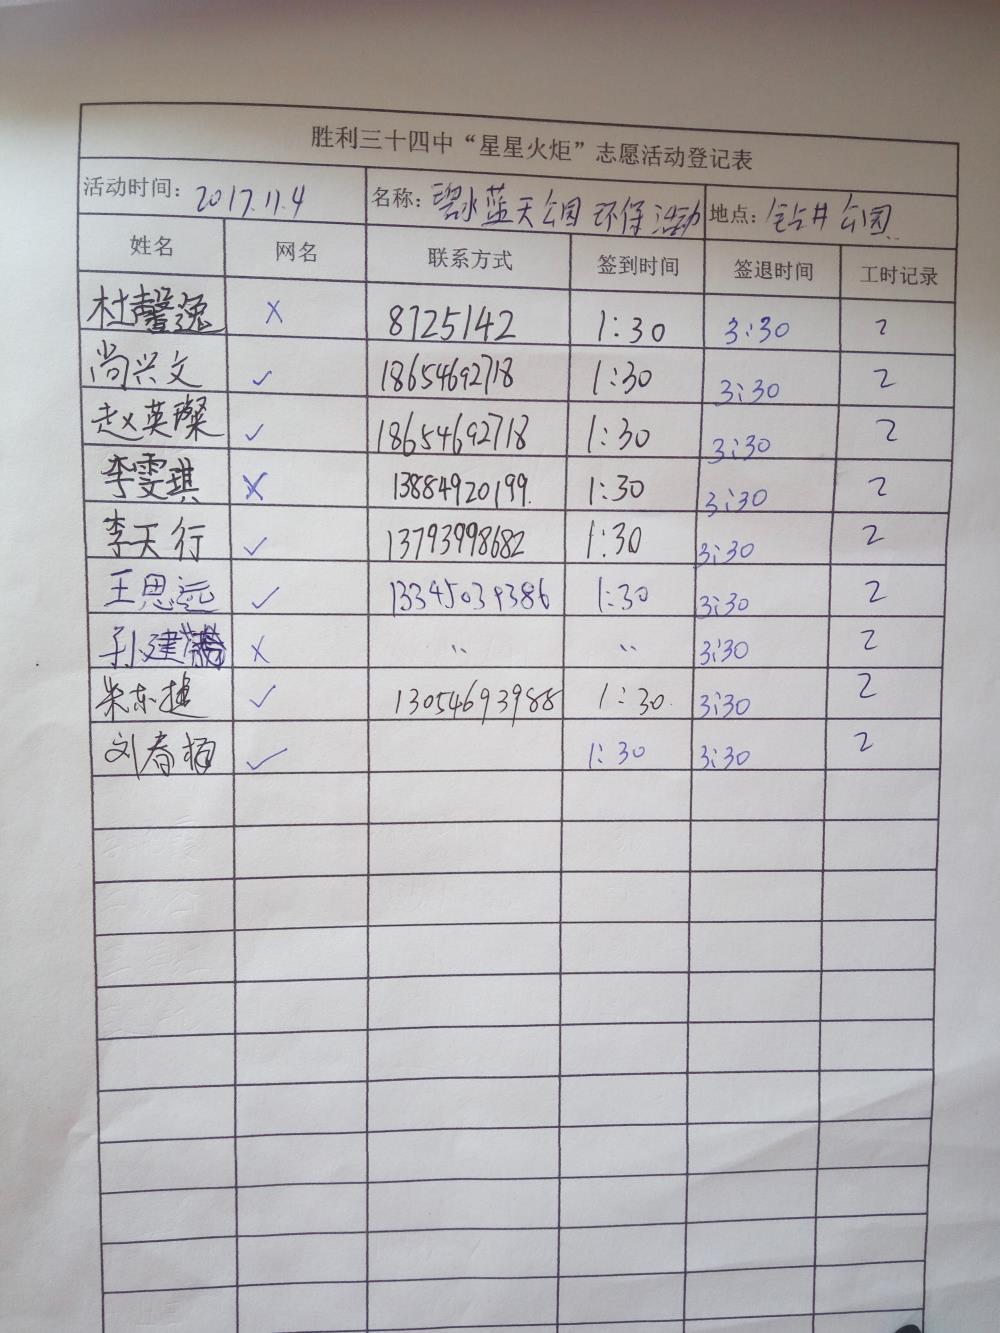 胜利三十四中“星星火炬”志愿活动登记表
活动时间：2017.11.4 名称：碧水蓝天公园环保活动 地点：钻井公园
姓名 网名 联系方式 签到时间 签退时间 工时记录
杜馨逸 × 8725142 1:30 3:30 2
尚兴文 ✓ 18654692718 1:30 3:30 2
赵英璨 ✓ 18654692718 1:30 3:30 2
李雯琪 × 13884920199. 1:30 3:30 2
李天行 ✓ 13793998682 1:30 3:30 2
王思远 ✓ 13345039386 1:30 3:30 2
孙建 × ،، ،، 3:30 2
朱东捷 ✓ 13054693988 1:30 3:30 2
刘春 ✓ 1:30 3:30 2